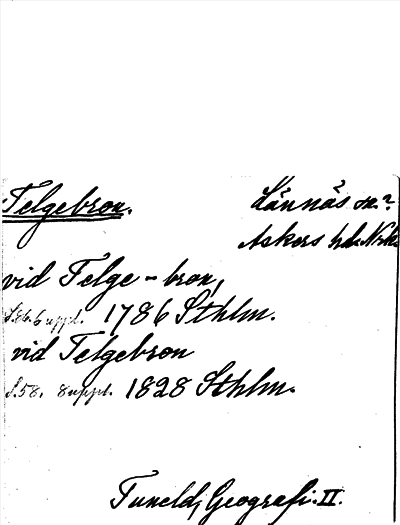 Telgebron. Lännäs sn.?
Askers hd. Nrk.
vid Telge-bron,
S.86. 6 uppl. 1786 Sthlm.
vid Telgebron
S.58. 8 uppl. 1828 Sthlm.
Tuneld, Geografi. II.